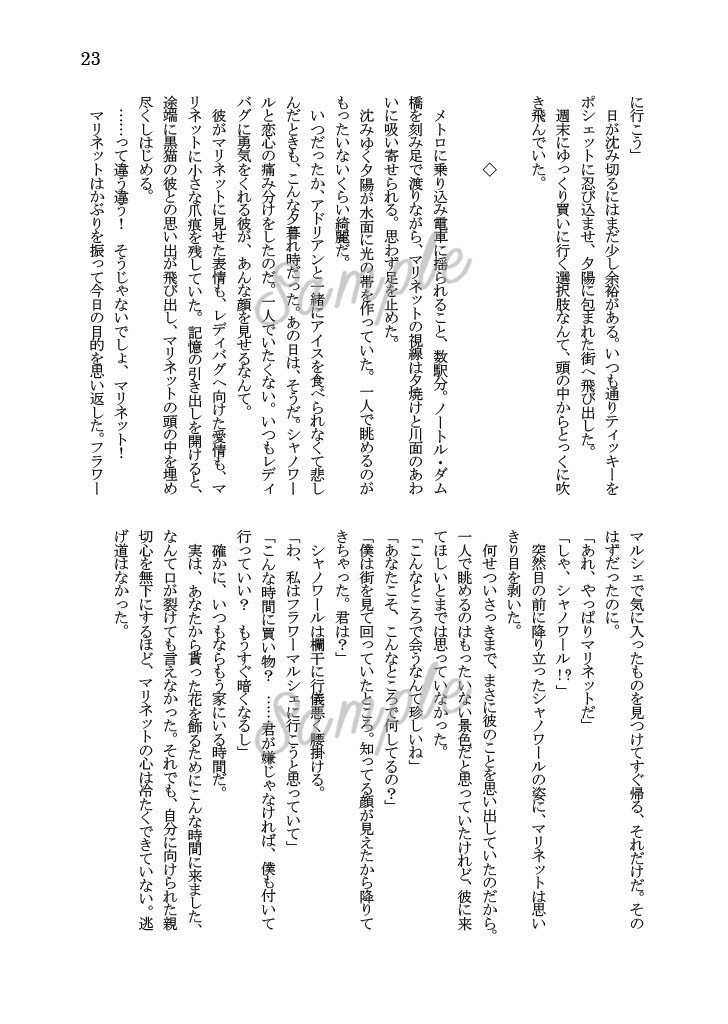 23
に行こう」
　日が沈み切るにはまだ少し余裕がある。いつも通りティッキーを
ポシェットに忍び込ませ、夕陽に包まれた街へ飛び出した。
　週末にゆっくり買いに行く選択肢なんて、頭の中からとっくに吹
き飛んでいた。
◇
　メトロに乗り込み電車に揺られること、数駅分。ノートル・ダム
橋を刻み足で渡りながら、マリネットの視線は夕焼けと川面のあわ
いに吸い寄せられる。思わず足を止めた。
　沈みゆく夕陽が水面に光の帯を作っていた。一人で眺めるのが
もったいないくらい綺麗だ。
　いつだったか、アドリアンと一緒にアイスを食べられなくて悲し
んだときも、こんな夕暮れ時だった。あの日は、そうだ。シャノワー
ルと恋心の痛み分けをしたのだ。一人でいたくない。いつもレディ
バグに勇気をくれる彼が、あんな顔を見せるなんて。
　彼がマリネットに見せた表情も、レディバグへ向けた愛情も、マ
リネットに小さな爪痕を残していた。記憶の引き出しを開けると、
途端に黒猫の彼との思い出が飛び出し、マリネットの頭の中を埋め
尽くしはじめる。
　……って違う違う！　そうじゃないでしょ、マリネット！
　マリネットはかぶりを振って今日の目的を思い返した。フラワー
マルシェで気に入ったものを見つけてすぐ帰る、それだけだ。その
はずだったのに。
「あれ、やっぱりマリネットだ」
「しゃ、シャノワール!?」
　突然目の前に降り立ったシャノワールの姿に、マリネットは思い
きり目を剥いた。
　何せついさっきまで、まさに彼のことを思い出していたのだから。
一人で眺めるのはもったいない景色だと思っていたけれど、彼に来
てほしいとまでは思っていなかった。
「こんなところで会うなんて珍しいね」
「あなたこそ、こんなところで何してるの？」
「僕は街を見て回っていたところ。知ってる顔が見えたから降りて
きちゃった。君は？」
　シャノワールは欄干に行儀悪く腰掛ける。
「わ、私はフラワーマルシェに行こうと思っていて」
「こんな時間に買い物？　……君が嫌じゃなければ、僕も付いて
行っていい？　もうすぐ暗くなるし」
　確かに、いつもならもう家にいる時間だ。
　実は、あなたから貰った花を飾るためにこんな時間に来ました、
なんて口が裂けても言えなかった。それでも、自分に向けられた親
切心を無下にするほど、マリネットの心は冷たくできていない。逃
げ道はなかった。
Sample
Sample